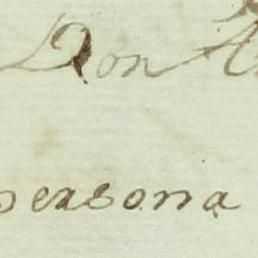 Don
persona